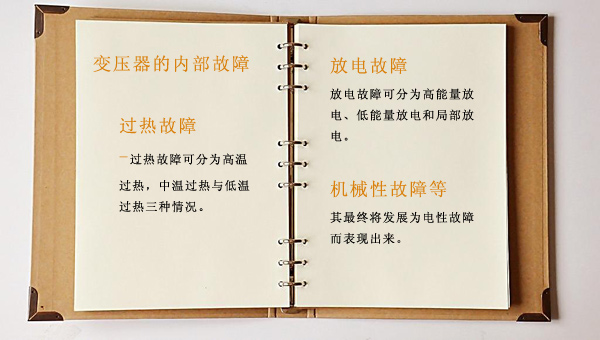 变压器的内部故障
过热故障
一过热故障可分为高温
过热，中温过热与低温
过热三种情况。
放电故障
放电故障可分为高能量放
电、低能量放电和局部放
电。
机械性故障等
其最终将发展为电性故障
而表现出来。